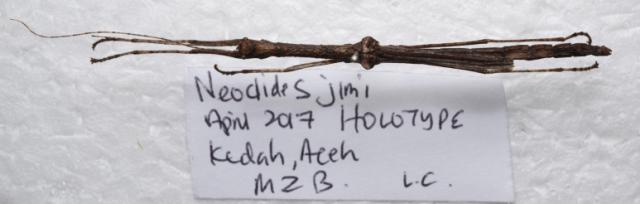 Neoclides jimi
April 2017 HOLOTYPE
Kedah, Aceh
MZB. L.C.